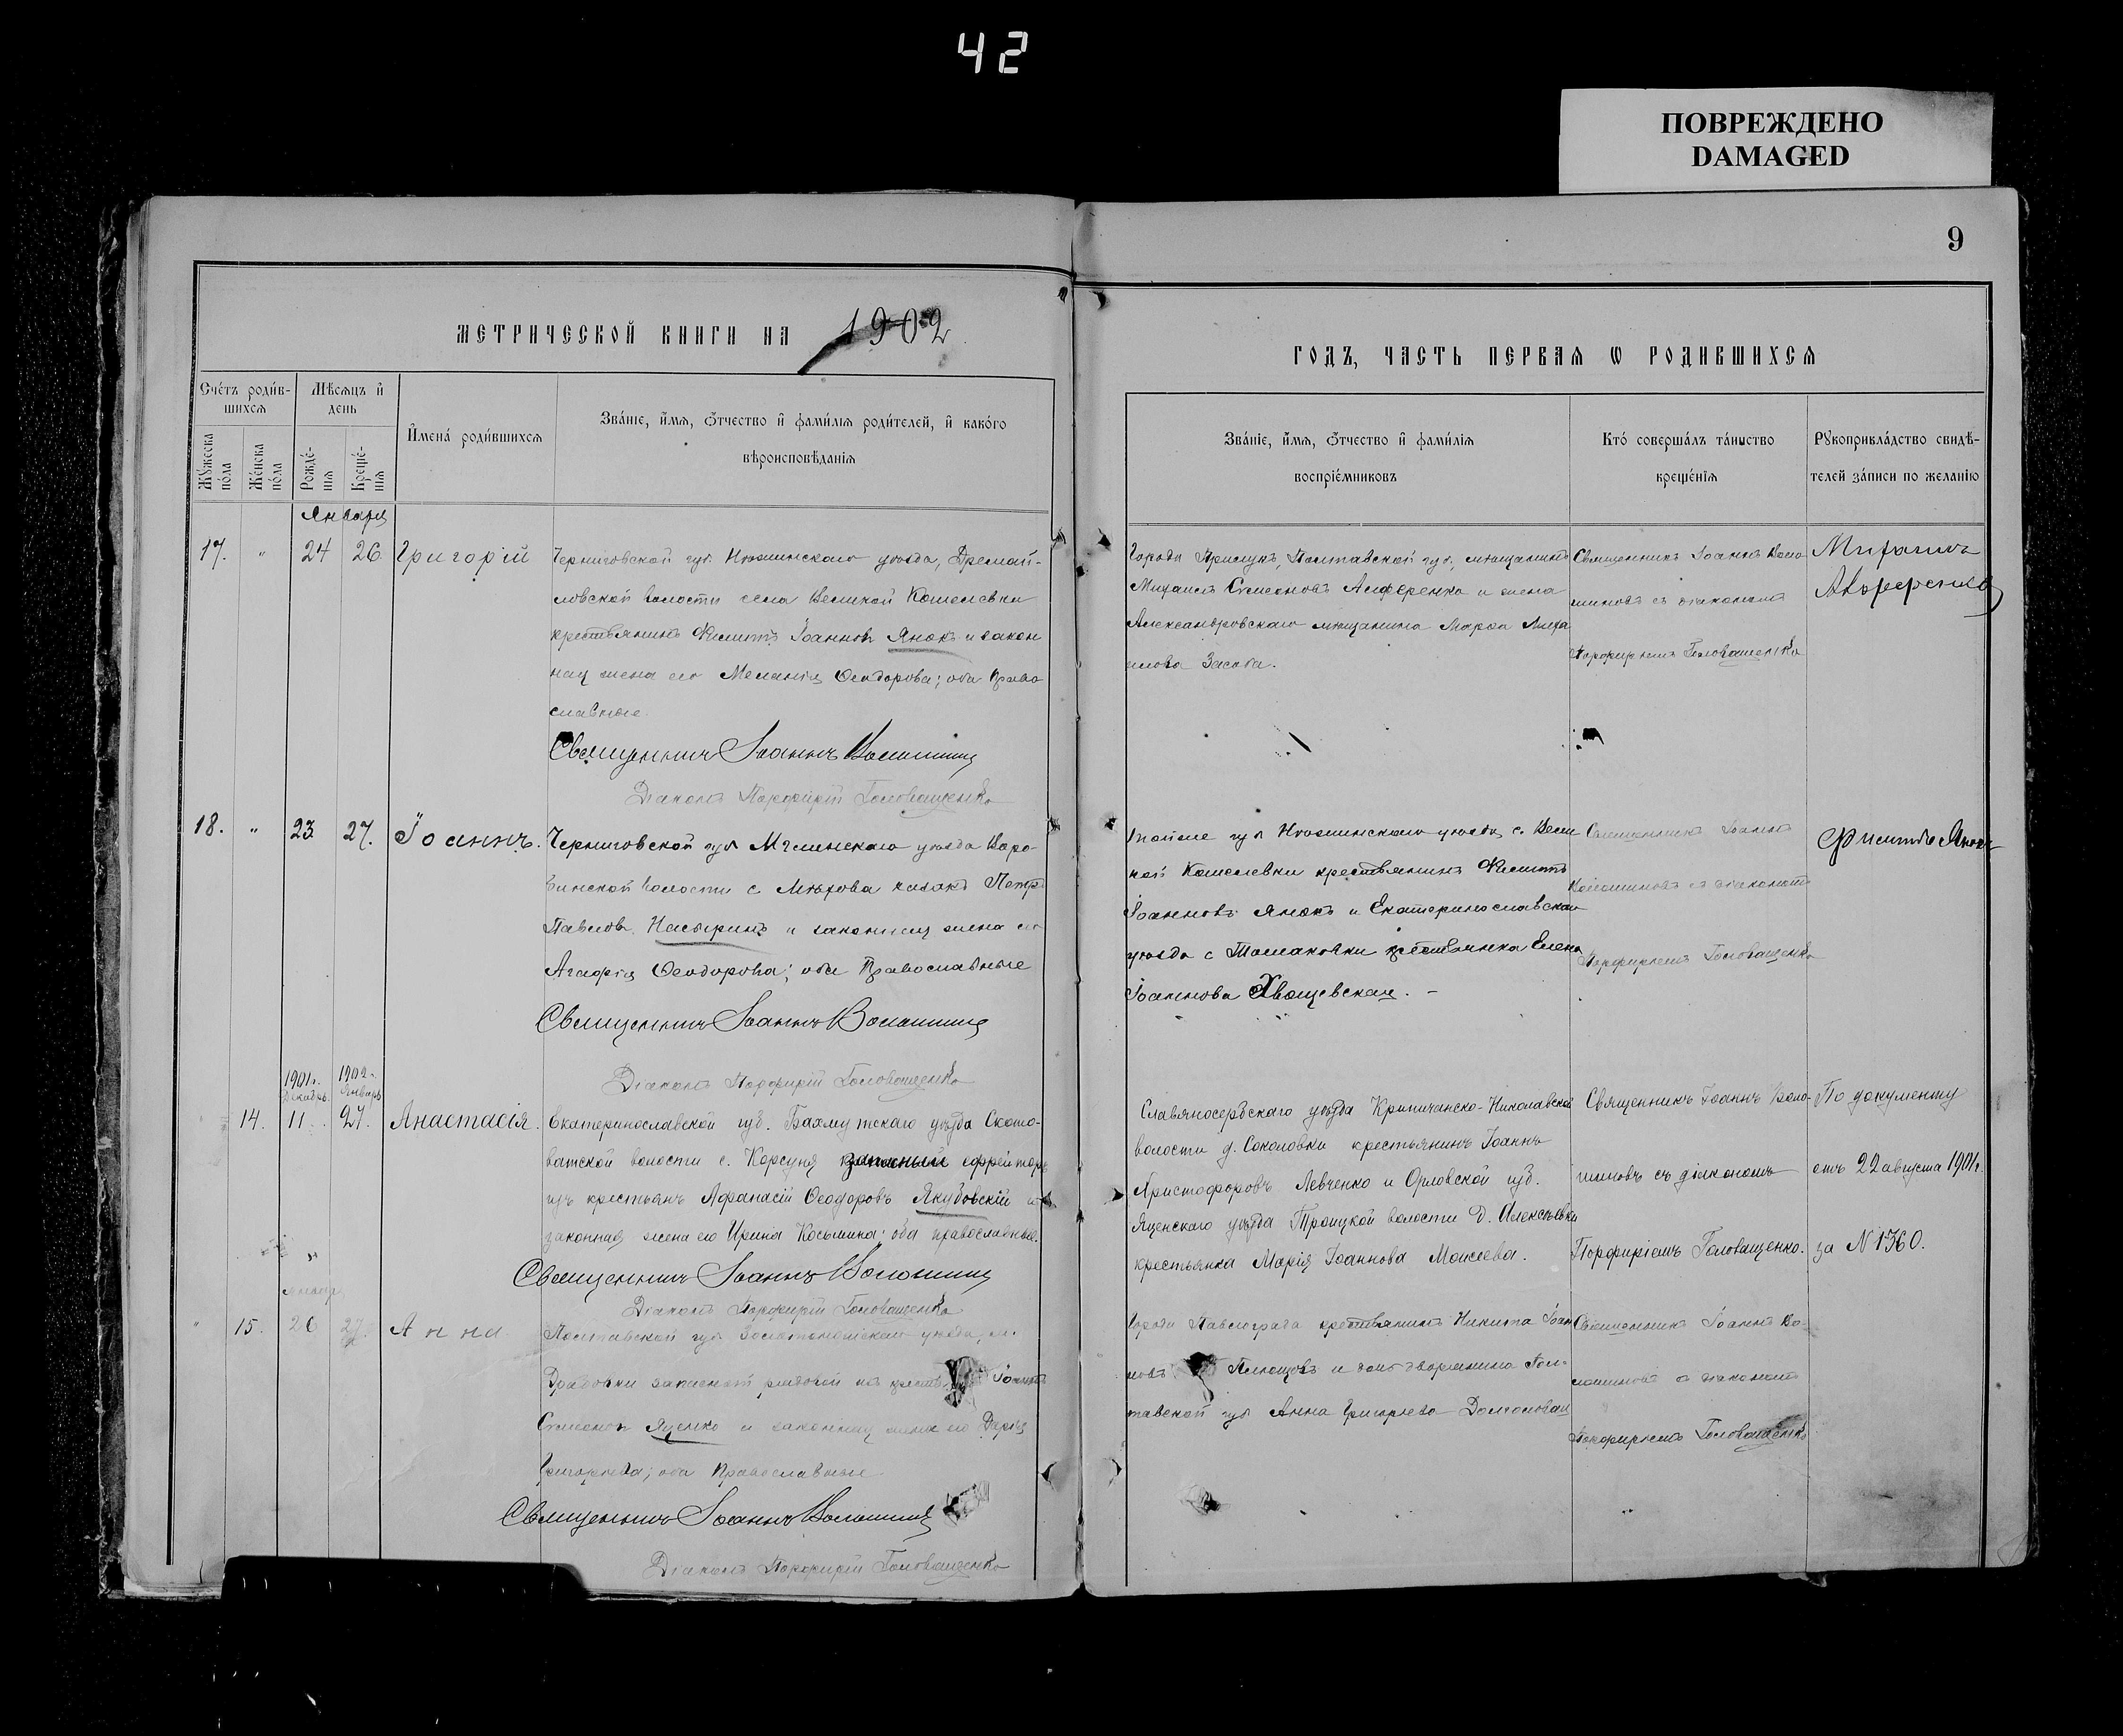 42
ПОВРЕЖДЕНО
DAMAGED
9
МЕТРИЧЕСКОЙ КНИГИ НА 1902
ГОДЪ, ЧАСТЬ ПЕРВАЯ Ѡ РОДИВШИХСЯ
Счетъ родив-
шихся
Мѣсяцъ и
день
Мужеска
пола
Женска
пола
Рожде-
нія
Креще-
нія
Имена родившихся
Званіе, имя, отчество и фамилія родителей, и какого
вѣроисповѣданія
Званіе, имя, отчество и фамилія
воспріемниковъ
Кто совершалъ таинство
крещенія
Рукоприкладство свидѣ-
телей записи по желанію
Января
17. " 24 26 Григорій
Черниговской губ. Нѣжинскаго уѣзда, Дремай-
ловской волости села Великой Кошелевки
крестьянинъ Филиппъ Іоанновъ Янокъ и закон
ная жена его Меланія Ѳеодорова; оба Право
славные.
Священникъ Іоаннъ Волошинъ
Діаконъ Порфирій Головащенко
Города Прилукъ, Полтавской губ., мѣщанинъ
Михаилъ Симеоновъ Алференко и жена
Александровскаго мѣщанина Марѳа
Засоба.
Священникъ Іоаннъ Воло
шиновъ съ діакономъ
Порфиріемъ Головащенко
Михаилъ
18. " 23 27. Іоаннъ.
Черниговской губ Мглинскаго уѣзда
волости с. казакъ Петръ
Павловъ и законная жена его
Агафія Ѳеодорова; оба Православные
Священникъ Іоаннъ Волошинъ
Діаконъ Порфирій Головащенко
губ Нѣжинскаго уѣзда с. Вели
кой Кошелевки крестьянинъ Филиппъ
Іоанновъ Янокъ и Екатеринославскаго
уѣзда с Томаковки крестьянка Елена
Іоаннова Хвощевская. —
Священникъ Іоаннъ
Волошиновъ съ діакономъ
Порфиріемъ Головащенко
Филиппъ Янокъ
1901г. 1902г.
Декабрь. Январь
14. 11. 27. Анастасія.
Екатеринославской губ. Бахмутскаго уѣзда Ското-
ватской волости с. Корсуня запасный ефрейторъ
изъ крестьянъ Аѳанасій Ѳеодоровъ Якубовскій и
законная жена его Ирина Косьмина; оба православные.
Священникъ Іоаннъ Волошинъ
Діаконъ Порфирій Головащенко
Славяносербскаго уѣзда Криничанско-Николаевской
волости д. Соколовки крестьянинъ Іоаннъ
Христофоровъ Левченко и Орловской губ.
уѣзда Троицкой волости д. Алексѣевки
крестьянка Марія Іоаннова Моисеева.
Священникъ Іоаннъ Воло-
шиновъ съ діакономъ
Порфиріемъ Головащенко.
По документу
отъ 22 августа 1901г.
за N 1360.
Январ
" 15. 26 27. Анна
Полтавской губ Золотоношскаго уѣзда, м.
Драбовки запасной рядовой изъ Іоаннъ
Симеоновъ Яценко и законная жена его Дарія
Григорьева; оба Православные
Священникъ Іоаннъ Волошинъ
Діаконъ Порфирій Головащенко
Города Павлограда крестьянинъ Никита Іоан
новъ и дочь дворянина Пол-
тавской губ Анна Григорьева
Священникъ Іоаннъ Во-
лошиновъ съ діакономъ
Порфиріемъ Головащенко